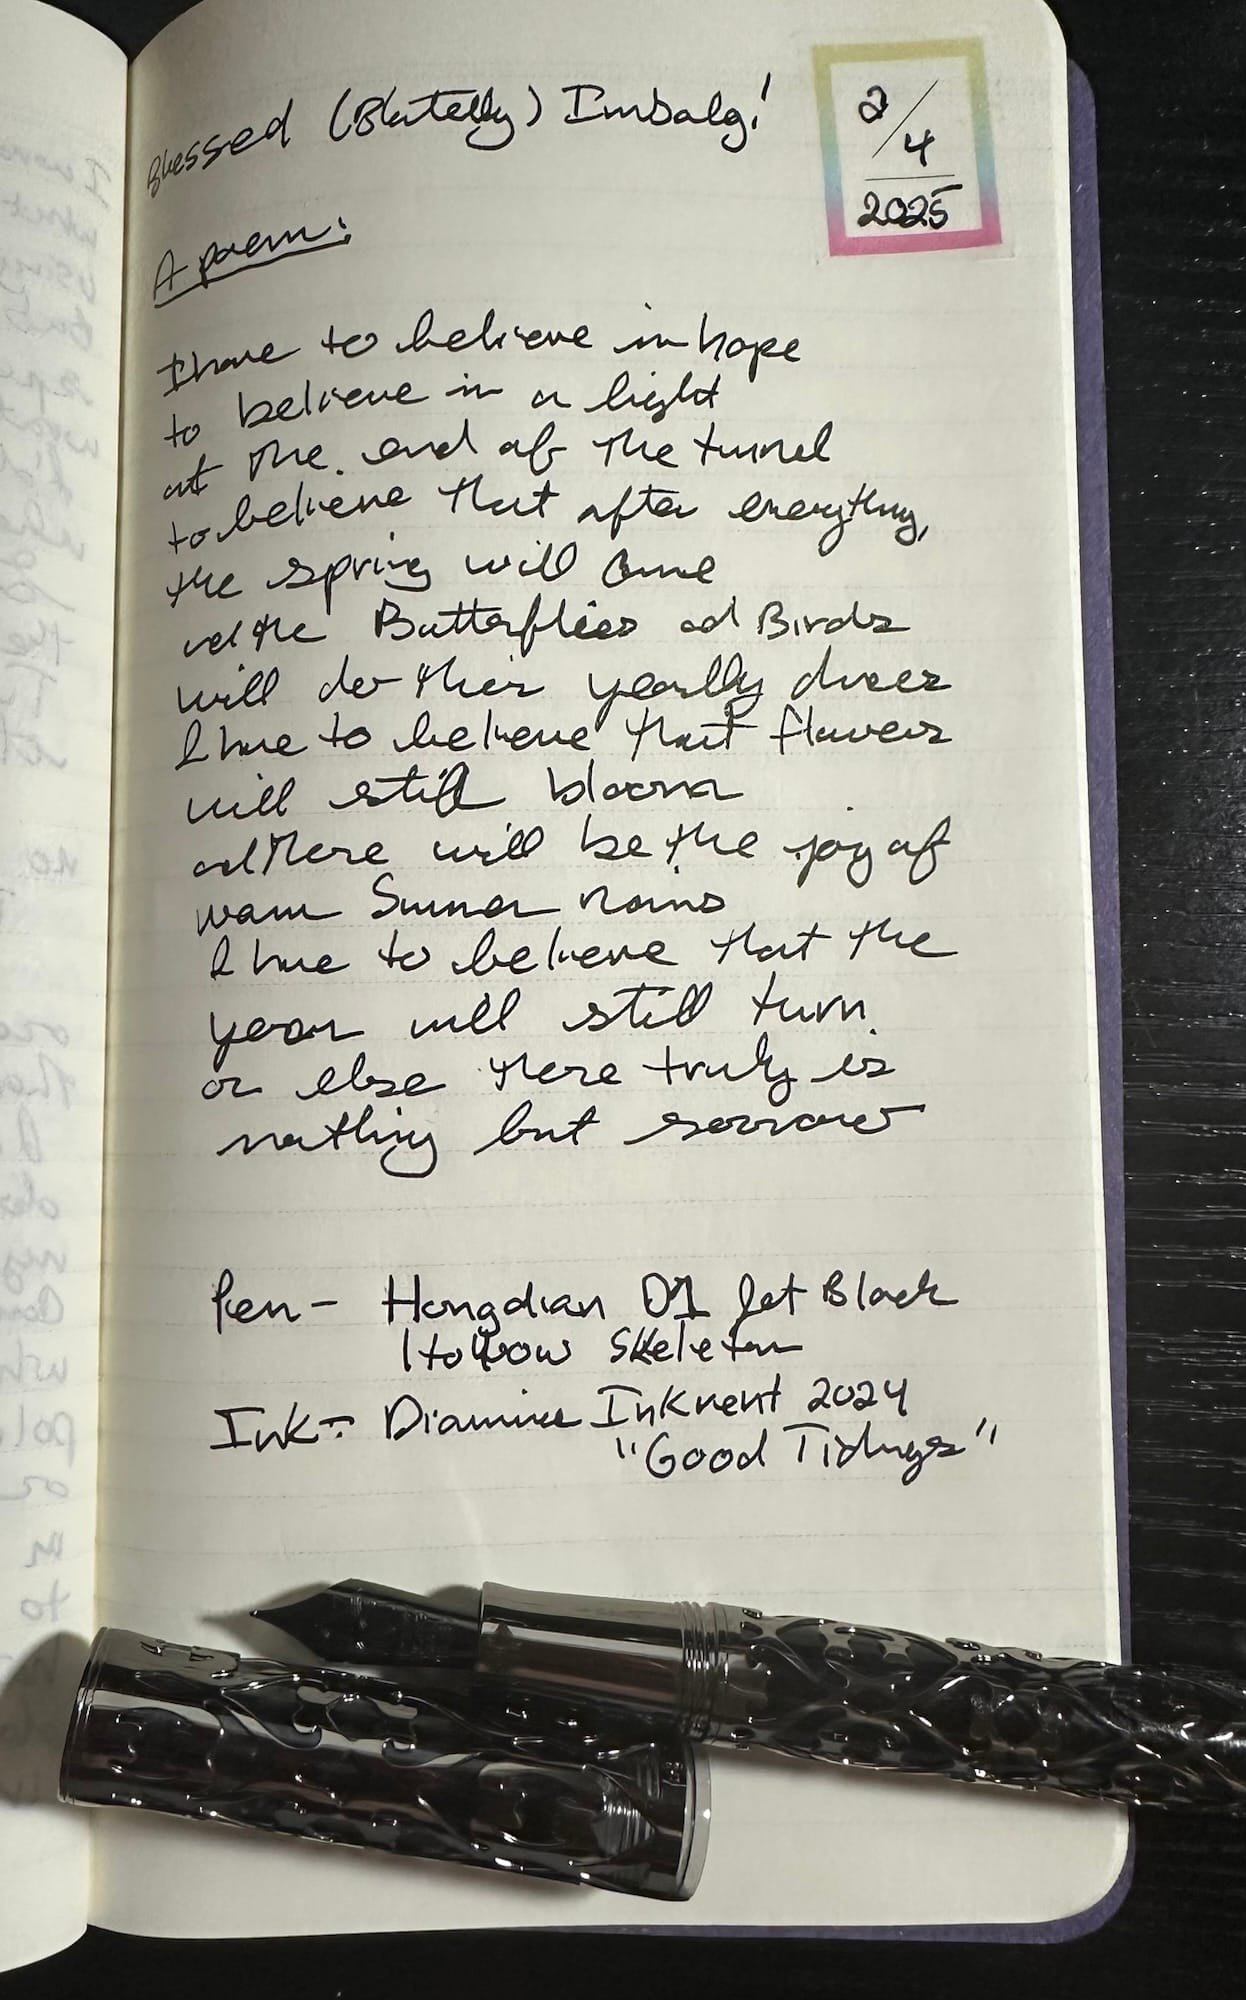 Blessed (Blatelly) Imbolg!
2/4
2025
A poem:
I have to believe in hope
to believe in a light
at the end of the tunnel
to believe that after everything,
the spring will come
and the Butterflies and Birds
will do their yearlly dances
I have to believe that flowers
will still bloom
and there will be the joy of
warm Summer rains
I have to believe that the
year will still turn
or else there truly is
nothing but sorrow
Pen - Hongdian D1 Jet Black
Hollow Skeleton
Ink - Diamine Inkvent 2024
"Good Tidings"